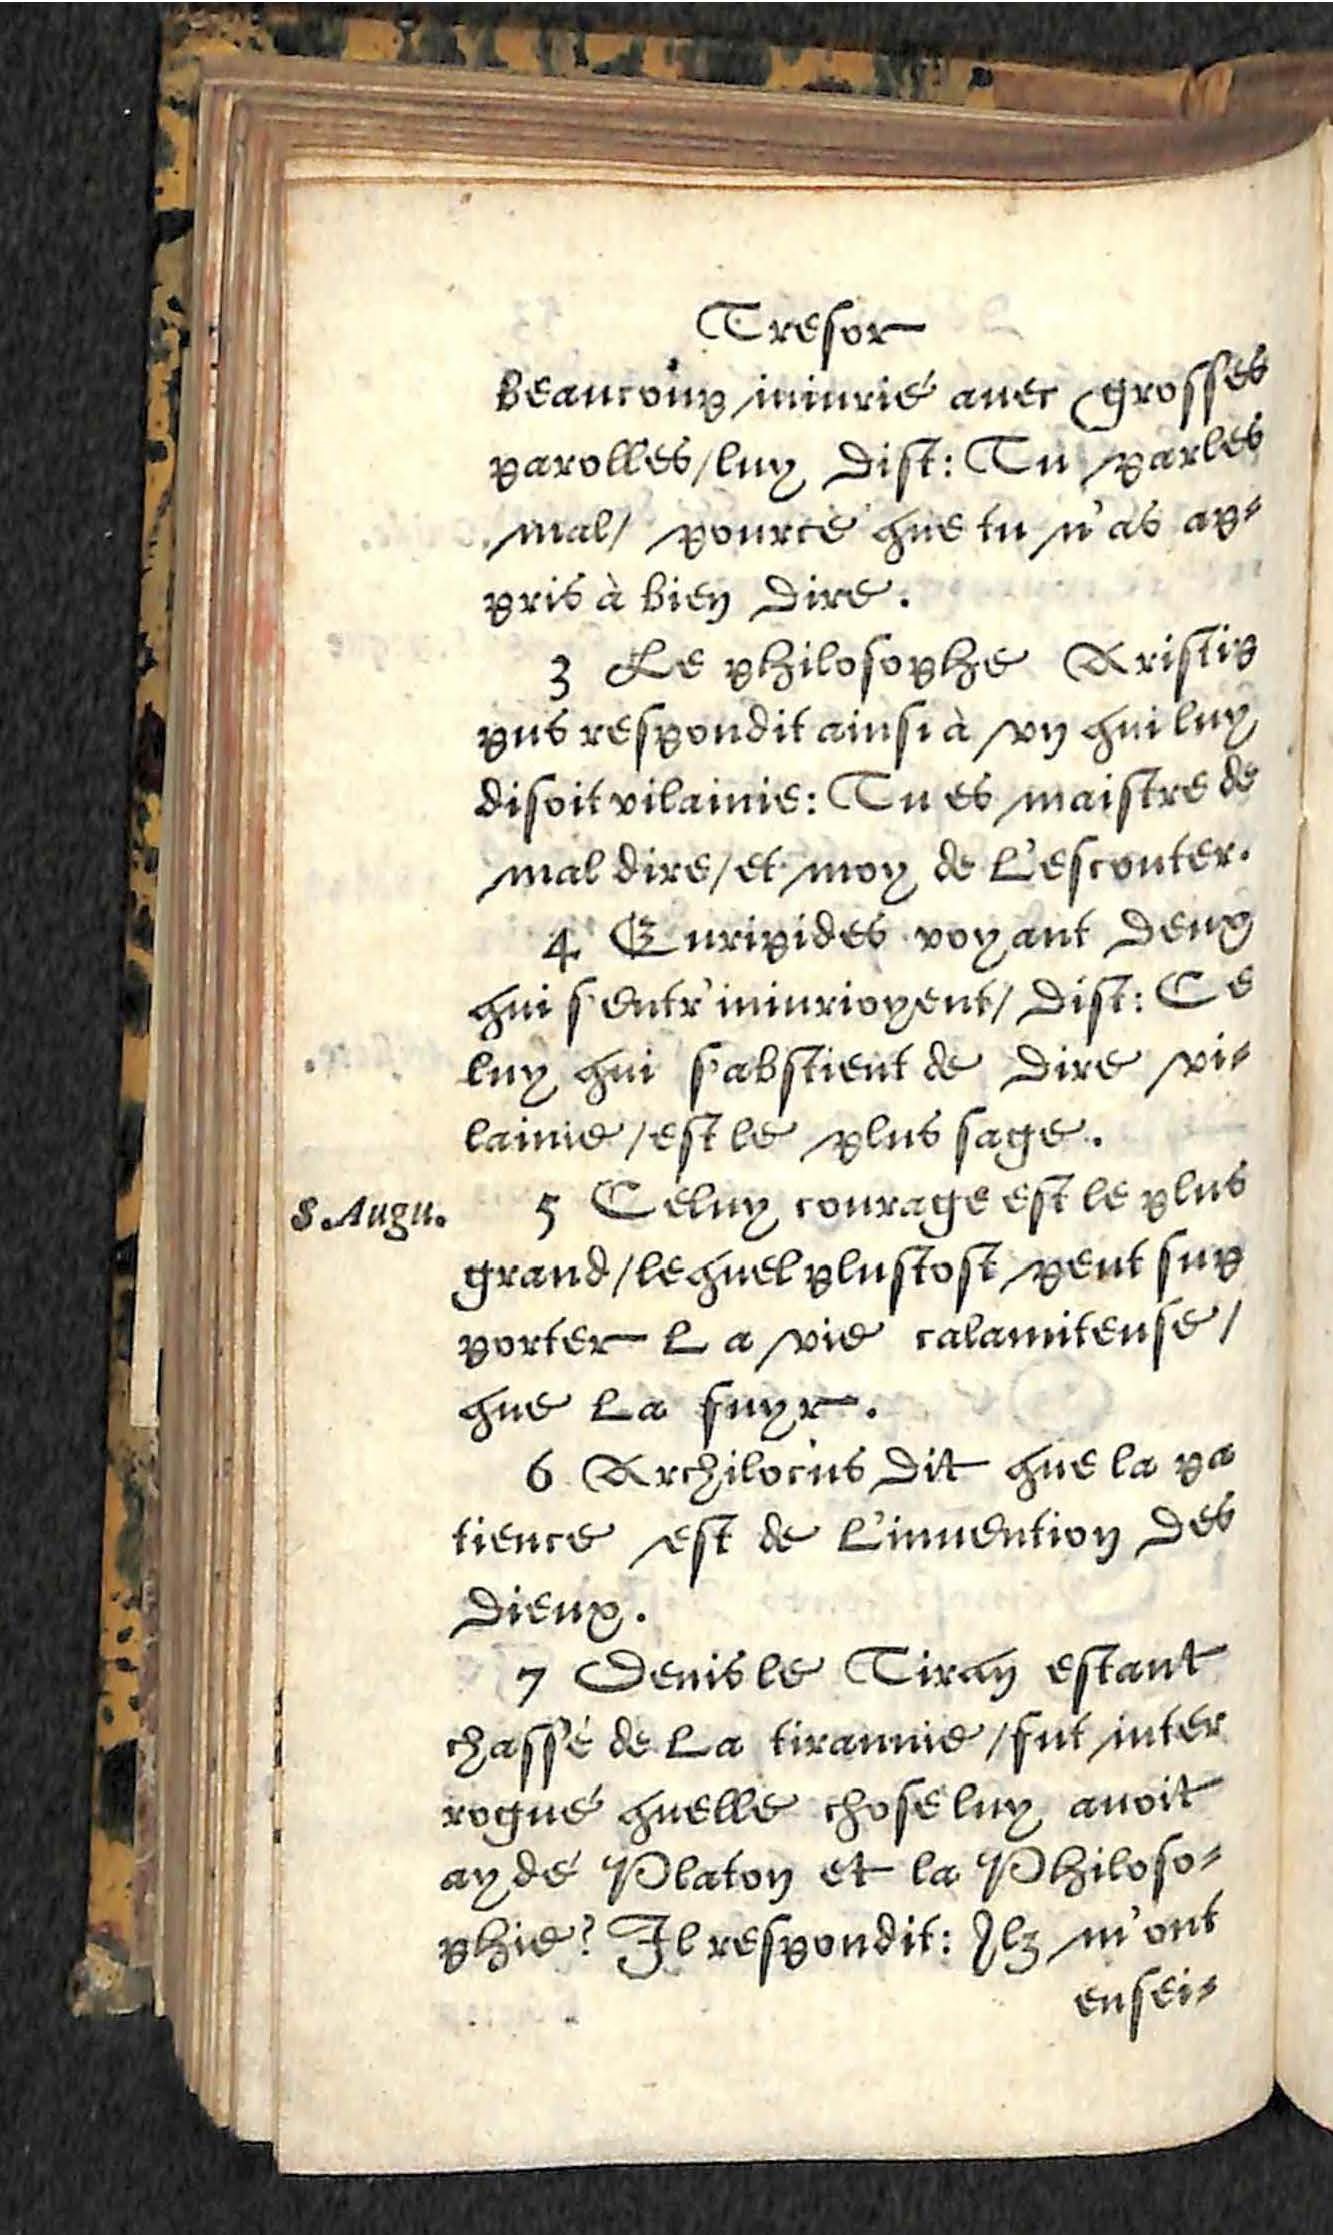 Tresor
beaucoup iniurié auec grosses
parolles/luy dist: Tu parles
mal/ pource que tu n'as ap-
pris à bien dire.
3 Le philosophe Aristip
pus respondit ainsi à vn qui luy
disoit vilainie: Tu es maistre de
mal dire/et moy de l'escouter.
4 Euripides voyant deux
qui s'entr'iniurioyent/ dist: Ce
luy qui s'abstient de dire vi-
lainie/est le plus sage.
S. Augu. 5 Celuy courage est le plus
grand/lequel plustost peut sup
porter la vie calamiteuse/
que la fuyr.
6 Archilocus dit que la pa
tience est de l'inuention des
dieux.
7 Denis le Tiran estant
chassé de la tirannie/fut inter
rogué quelle chose luy auoit
aydé Platon et la Philoso-
phie? Il respondit: Ilz m'ont
ensei-